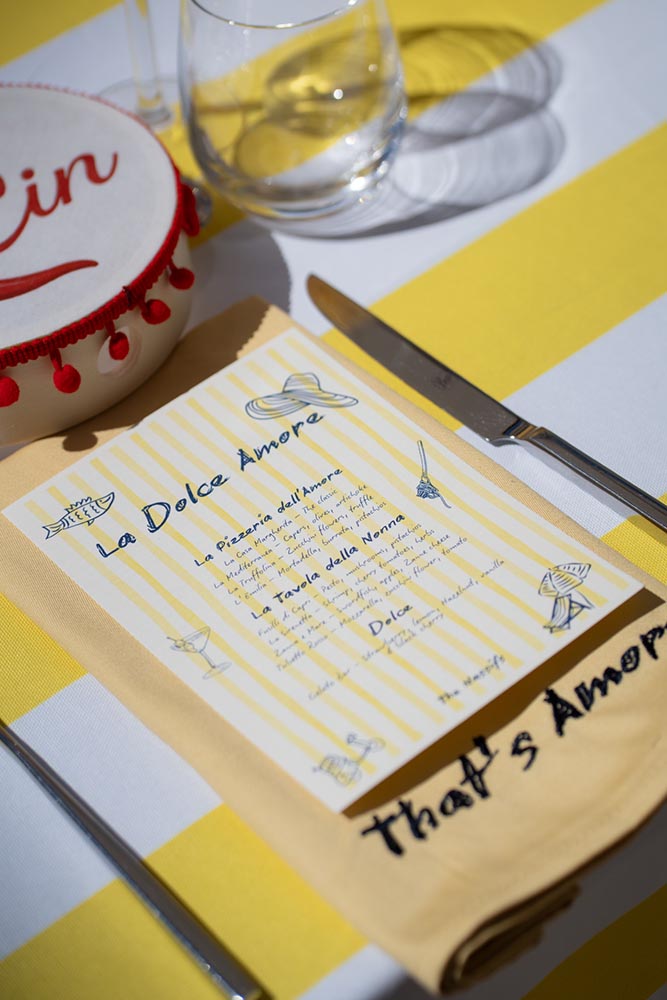 Cin
La Dolce Amore
La Pizzeria dell'Amore
La Casa Margherita - The classic
La Mediterranea - Capers, olives, artichoke
La Truffolina - Zucchini flowers, truffle
L'Emilia - Mortadella, burrata, pistachios
La Tavola della Nonna
Fusilli di Capri - Pesto, mushrooms, pistachios
La - Shrimp, cherry tomatoes, herbs
Mare - Swordfish, capers, cheese
Rosso - Mozzarella, zucchini flowers, tomato
Dolce
Gelato bar - Strawberry, lemon, hazelnut, vanilla
& black cherry
The Nassifs
That's Amore